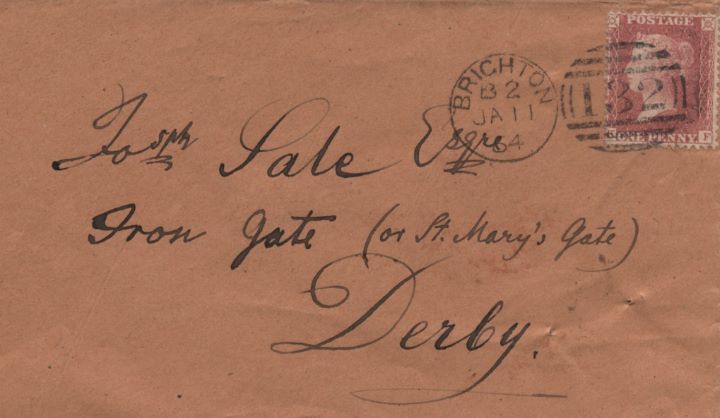 POSTAGE
ONE PENNY
F
132
BRIGHTON
B 2
JA 11
64
Josph Sale Esqre
Iron Gate (or St. Mary's Gate)
Derby.